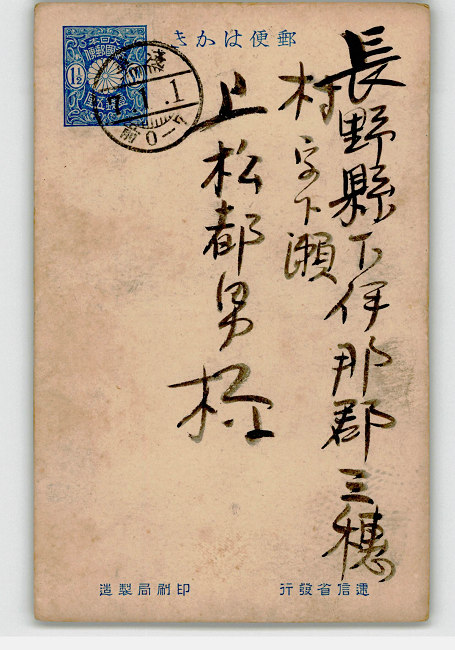 郵便はかき
大日本帝國郵便
1½
1.1
前0-
長野縣下伊那郡三穗
村字下瀬
上松都男様
逓信省發行
印刷局製造